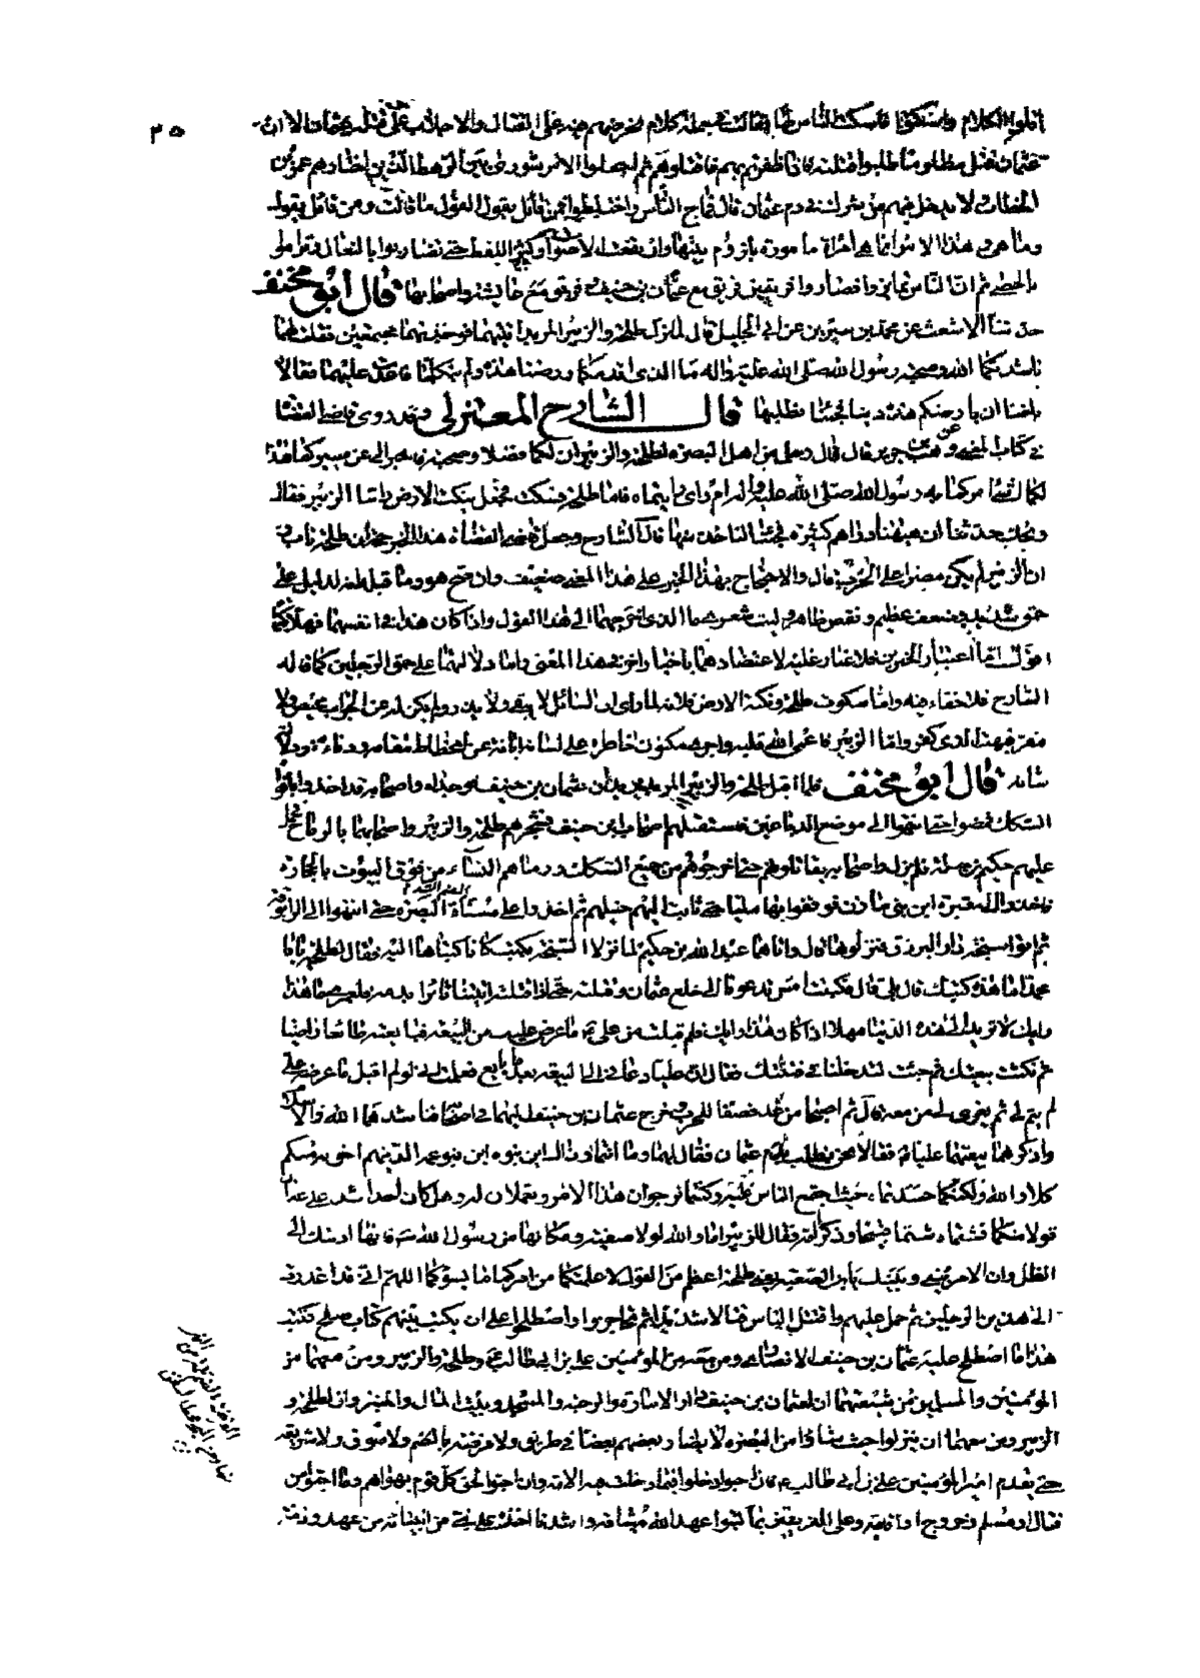 ٣٥
اقلوا الكلام واسكتوا فاسكت الناس لها فقالت في جملة كلام تحرضهم فيه على القتال والاجلاب على قتلة عثمان الا ان
عثمان قتل مظلوما فاطلبوا قتلته فاذا ظفرتم بهم فاقتلوهم ثم اجعلوا الامر شورى بين الرهط الذين اختارهم عمر بن
الخطاب ولا يدخل فيهم من شرك في دم عثمان قال فماج الناس واختلطوا فمن قائل يقول القول ما قالت ومن قائل يقول
وما هي من هذا الامر انما هي امراة مامورة بلزوم بيتها وارتفعت الاصوات وكثر اللغط حتى تضاربوا بالنعال وتراموا
بالحصى ثم ان الناس تمايزوا فصاروا فريقين فريق مع عثمان بن حنيف وفريق مع عايشة واصحابها قال ابو مخنف
حدثنا الاشعث عن محمد بن سيرين عن ابي الجليل قال لما نزل طلحة والزبير المربد اتيتهما فوجدتهما مجتمعين فقلت لهما
ناشدتكما الله وصحبة رسول الله صلى الله عليه واله ما الذي اقدمكما ارضنا هذه فلم يتكلما فاعدت عليهما فقالا
بلغنا ان بارضكم هذه دنيا فجئنا نطلبها قال الشارح المعتزلي وقد روى قاضي القضاة
في كتاب المغني عن وهب بن جرير قال قال رجل من اهل البصرة لطلحة والزبير ان لكما فضلا وصحبة فاخبراني عن مسيركما هذا
وقتالكما اشئ امركما به رسول الله صلى الله عليه واله ام راي رايتماه فاما طلحة فسكت فجعل ينكت الارض واما الزبير فقال
ويحك حدثنا ان هيهنا دراهم كثيرة فجئنا لناخذ منها قال الشارح وجعل قاضي القضاة هذا الخبر حجة في ان طلحة تاب
ان الزبير لم يكن مصرا على الحرب قال والاحتجاج بهذا الخبر على هذا المعنى ضعيف وان صح هو وما قبله انه لدليل على
حمق شديد وضعف عظيم ونقص ظاهر وليت شعري ما الذي احوجهما الى هذا القول واذا كان هذا في انفسهما فهلا كتماه
اقول اما اعتبار الخبرين فلا غبار عليه لاعتضادهما باخبار اخر في هذا المعنى واما دلالتهما على حمق الرجلين كما قاله
الشارح فلا خفاء فيه واما سكوت طلحة ونكته الارض فلانه لما راى ان السائل لا ولم يكن له عن الجواب محيص ولا
مفر فبهت الذي كفر واما الزبير فاعمى الله قلبه واجرى مكنون خاطره على لسانه ابانة عن انحطاط مقامه ودناءة ودلالة
شانه قال ابو مخنف فلما اقبل طلحة والزبير من المربد يريدان عثمان بن حنيف فوجداه واصحابه قد اخذوا بافواه
السكك فمضوا حتى انتهوا الى موضع الدباغين فاستقبلهم اصحاب ابن حنيف فشجرهم طلحة والزبير واصحابهما بالرماح فحمل
عليهم حكيم بن جبلة فلم يزل واصحابه يقاتلونهم حتى اخرجوهم من جميع السكك ورماهم النساء من فوق البيوت بالحجارة
فاخذوا الى مقبرة ابن بني مازن فوقفوا بها مليا حتى ثابت اليهم خيلهم ثم اخذوا على مسناة البصرة حتى انتهوا الى الرابوقة
ثم اتوا سبخة دار الرزق فنزلوها قال واتاهما عبد الله بن حكيم لما نزلا السبخة بكتب كانا كتباها اليه فقال لطلحة يا ابا
محمد اما هذه كتبك قال بلى قال فكتبت امس تدعونا الى خلع عثمان وقتله حتى اذا قتلته اتيتنا ثائرا بدمه فلعمري ما هذا
رايك لا تريد الا هذه الدنيا مهلا اذا كان هذا رايك فلم قبلت من علي ما عرض عليك من البيعة فبايعته طائعا راضيا
ثم نكثت بيعتك ثم جئت لتدخلنا في فتنتك فقال ان عليا دعاني الى البيعة بعد ما بايع الناس فعلمت اني لو لم اقبل ما عرضه علي
لم يتم لي ثم يغري لي من معه قال ثم اصبحا من غد فصفا للحرب وخرج عثمان بن حنيف اليهما في اصحابه فناشدهما الله والاسلام
واذكرهما بيعتهما عليا فقالا نحن نطلب بدم عثمان فقال لهما وما انتما وذاك اين بنوه اين بنو عمه الذين هم احق به منكم
كلا والله ولكنكما حسدتماه حيث اجتمع الناس عليه وكنتما ترجوان هذا الامر وتعملان له وهل كان احد اشد على عثمان
قولا منكما فشتماه شتما قبيحا وذكرا امه فقال للزبير اما والله لولا صفية ومكانها من رسول الله فانها ادنتك الى
الظل وان الامر بيني وبينك يابن الصعبة يعني طلحة اعظم من القول لاعلمتكما من امركما ما يسوءكما اللهم اني قد اعذرت
الى هذين الرجلين ثم حمل عليهم واقتتل الناس قتالا شديدا ثم تحاجزوا واصطلحوا على ان يكتب بينهم كتاب صلح فكتب
هذا ما اصطلح عليه عثمان بن حنيف الانصاري ومن معه من المؤمنين من شيعة علي بن ابي طالب وطلحة والزبير ومن معهما من
المؤمنين والمسلمين من شيعتهما ان لعثمان بن حنيف دار الامارة والرحبة والمسجد وبيت المال والمنبر وان لطلحة و
الزبير ومن معهما ان ينزلوا حيث شاؤا من البصرة لا يضار بعضهم بعضا في طريق ولا فرضة ولا سوق ولا شريعة
حتى يقدم امير المؤمنين علي بن ابي طالب فان احبوا دخلوا فيما دخلت فيه الامة وان احبوا لحق كل قوم بهواهم وما احبوا من
قتال او سلم او خروج او اقامة وعلى الفريقين بما كتبوا عهد الله وميثاقه واشد ما اخذه على نبي من انبيائه من عهد وذمة